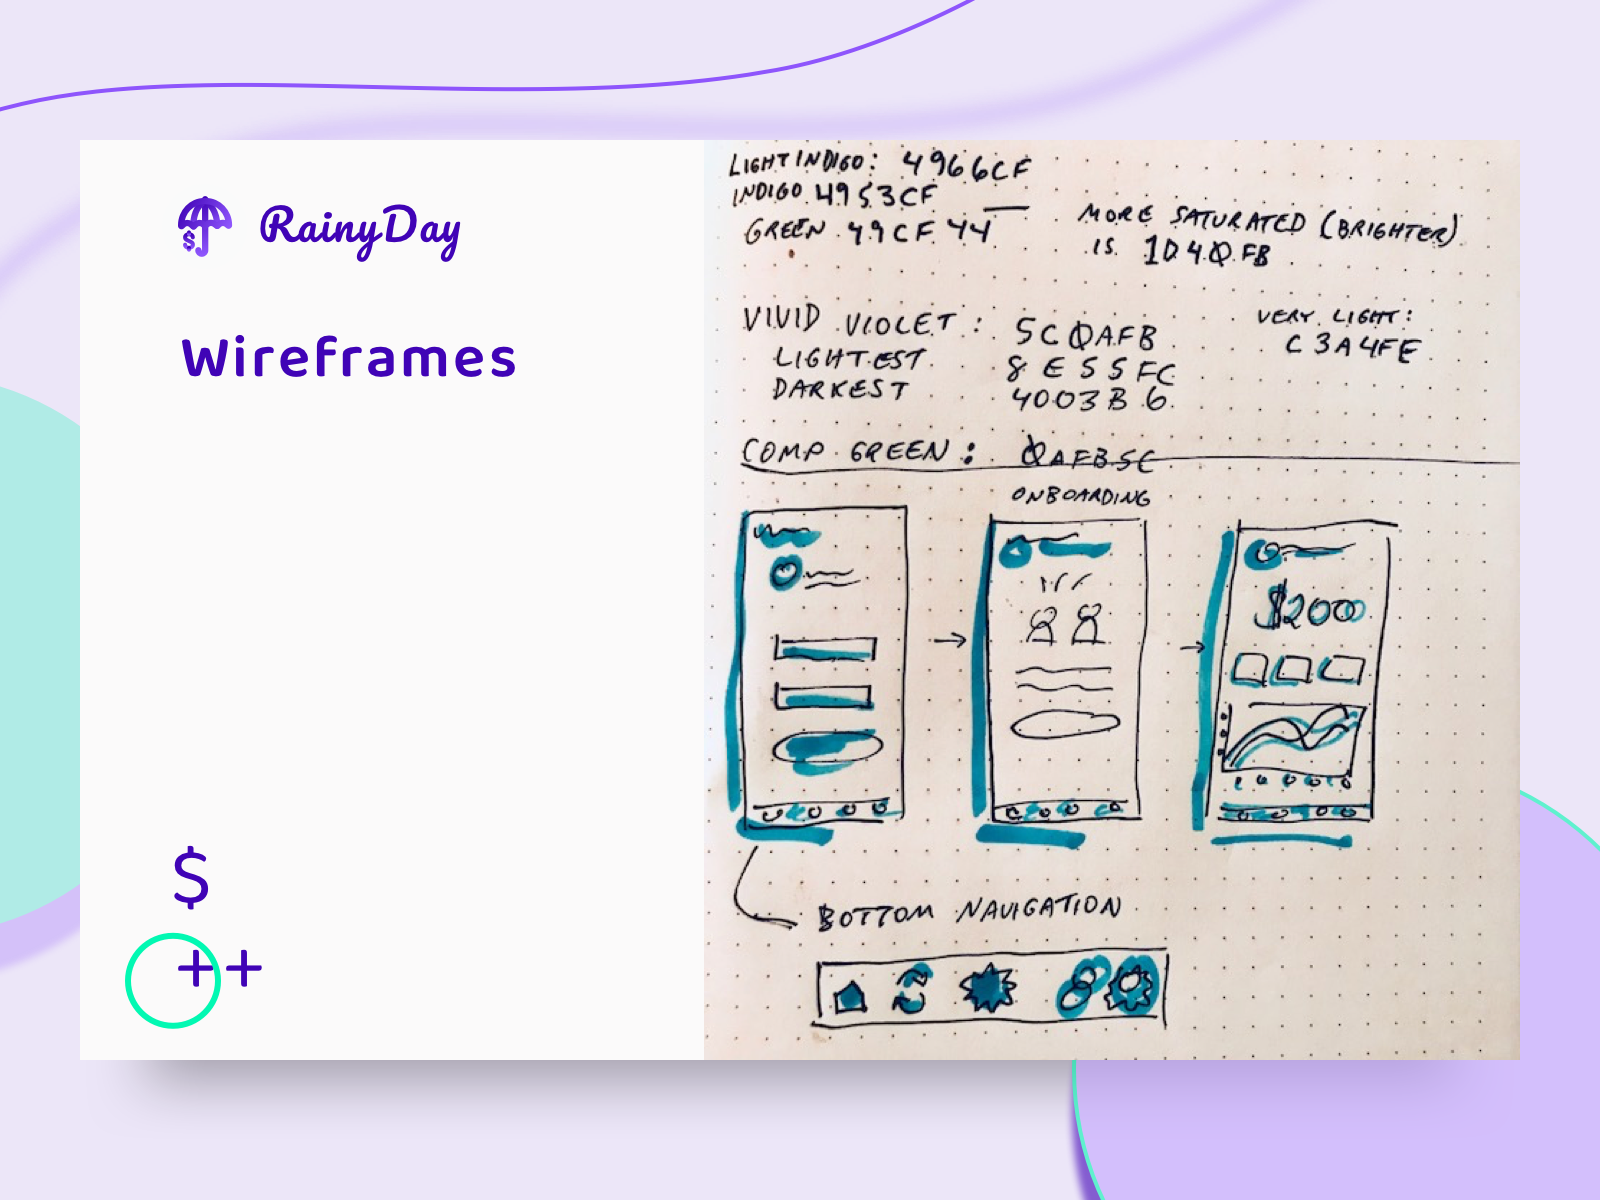 RainyDay
Wireframes
$
++
LIGHT INDIGO: 4966CF
INDIGO 4953CF
GREEN 49CF44
MORE SATURATED (BRIGHTER)
IS 1D40FB
VIVID VIOLET: 5C0AFB
LIGHTEST 8E55FC
DARKEST 4003B6
VERY LIGHT:
C3A4FE
COMP GREEN: 0AFB5C
ONBOARDING
$200
BOTTOM NAVIGATION